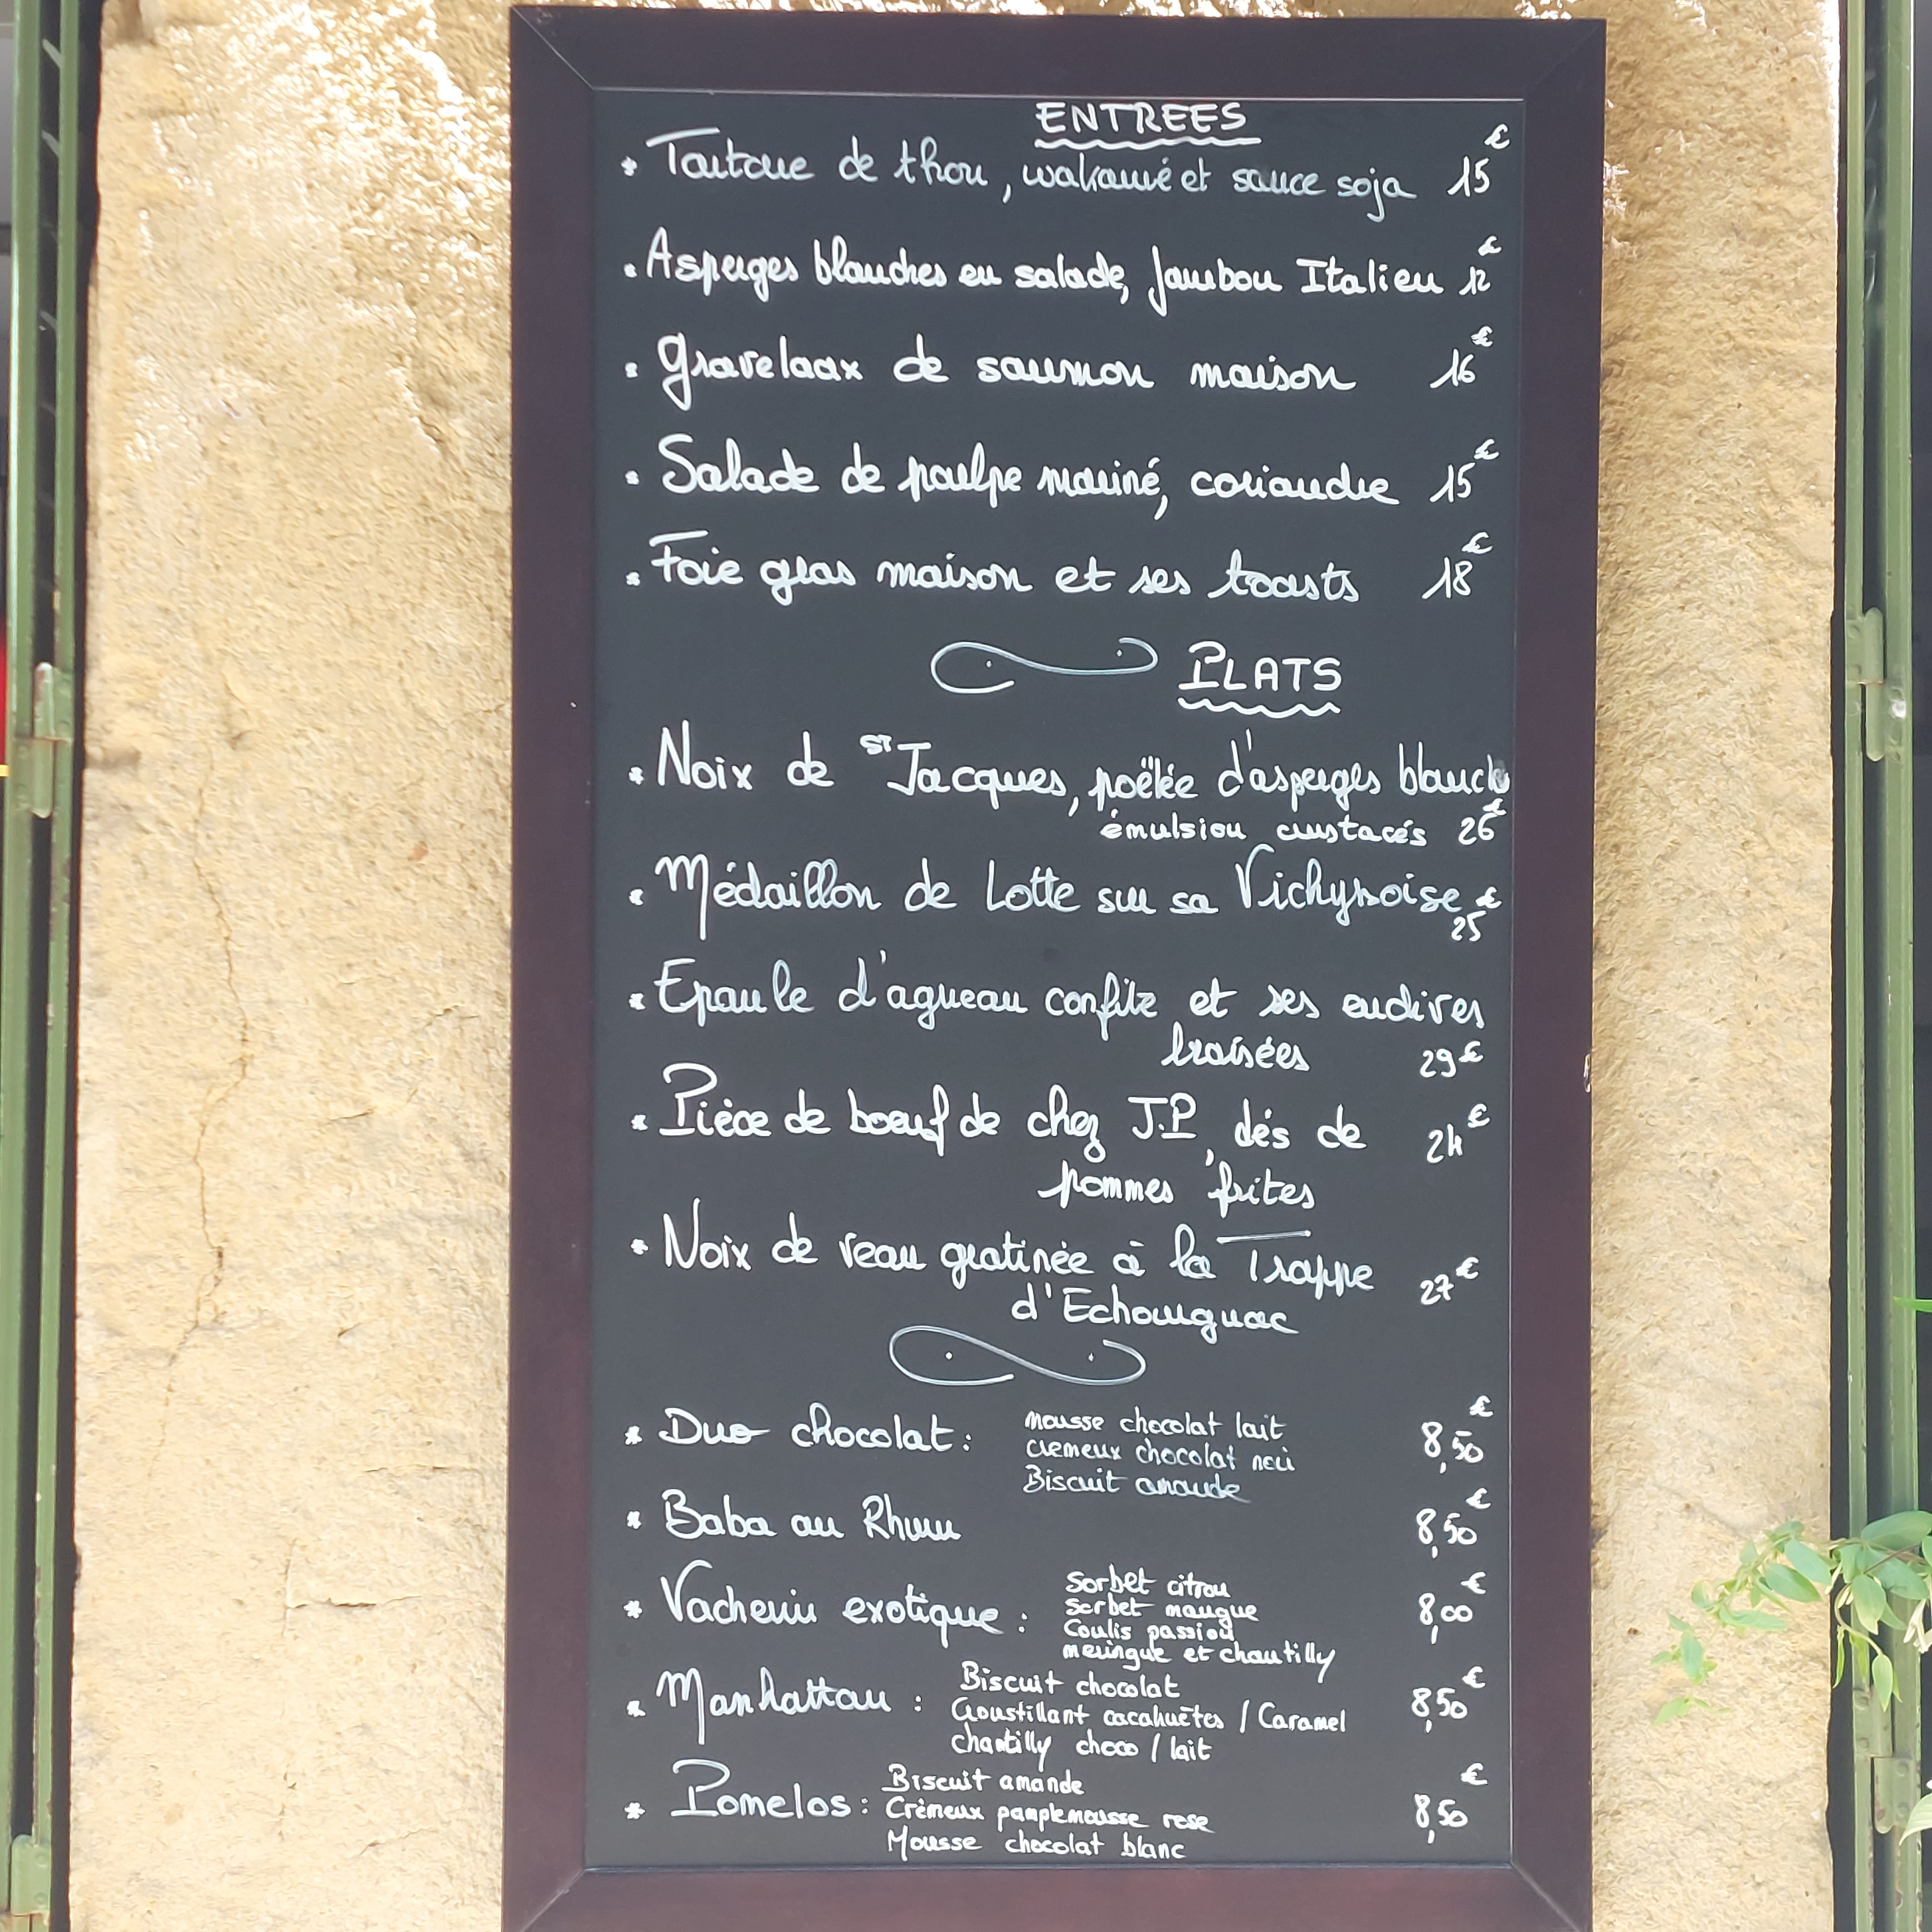 ENTREES
* Tartare de thon, wakamé et sauce soja 15€
* Asperges blanches en salade, Jambon Italien 12€
* Gravelaax de saumon maison 16€
* Salade de poulpe mariné, coriandre 15€
* Foie gras maison et ses toasts 18€
PLATS
* Noix de ST Jacques, poëlée d'asperges blanches
émulsion crustacés 26€
* Médaillon de Lotte sur sa Vichynoise €
25
* Epaule d'agneau confite et ses endives
braisées 29€
* Pièce de boeuf de chez J.P, dés de 24€
pommes frites
* Noix de veau gratinée à la Trappe 27€
d'Echourgnac
* Duo chocolat : mousse chocolat lait 8,50€
crémeux chocolat noir
Biscuit amande
* Baba au Rhum 8,50€
* Vacherin exotique : Sorbet citron 8,00€
Sorbet mangue
Coulis passion
meringue et chantilly
* Manhattan : Biscuit chocolat 8,50€
Croustillant cacahuètes / Caramel
chantilly choco / lait
* Pomelos : Biscuit amande 8,50€
Crèmeux pamplemousse rose
Mousse chocolat blanc